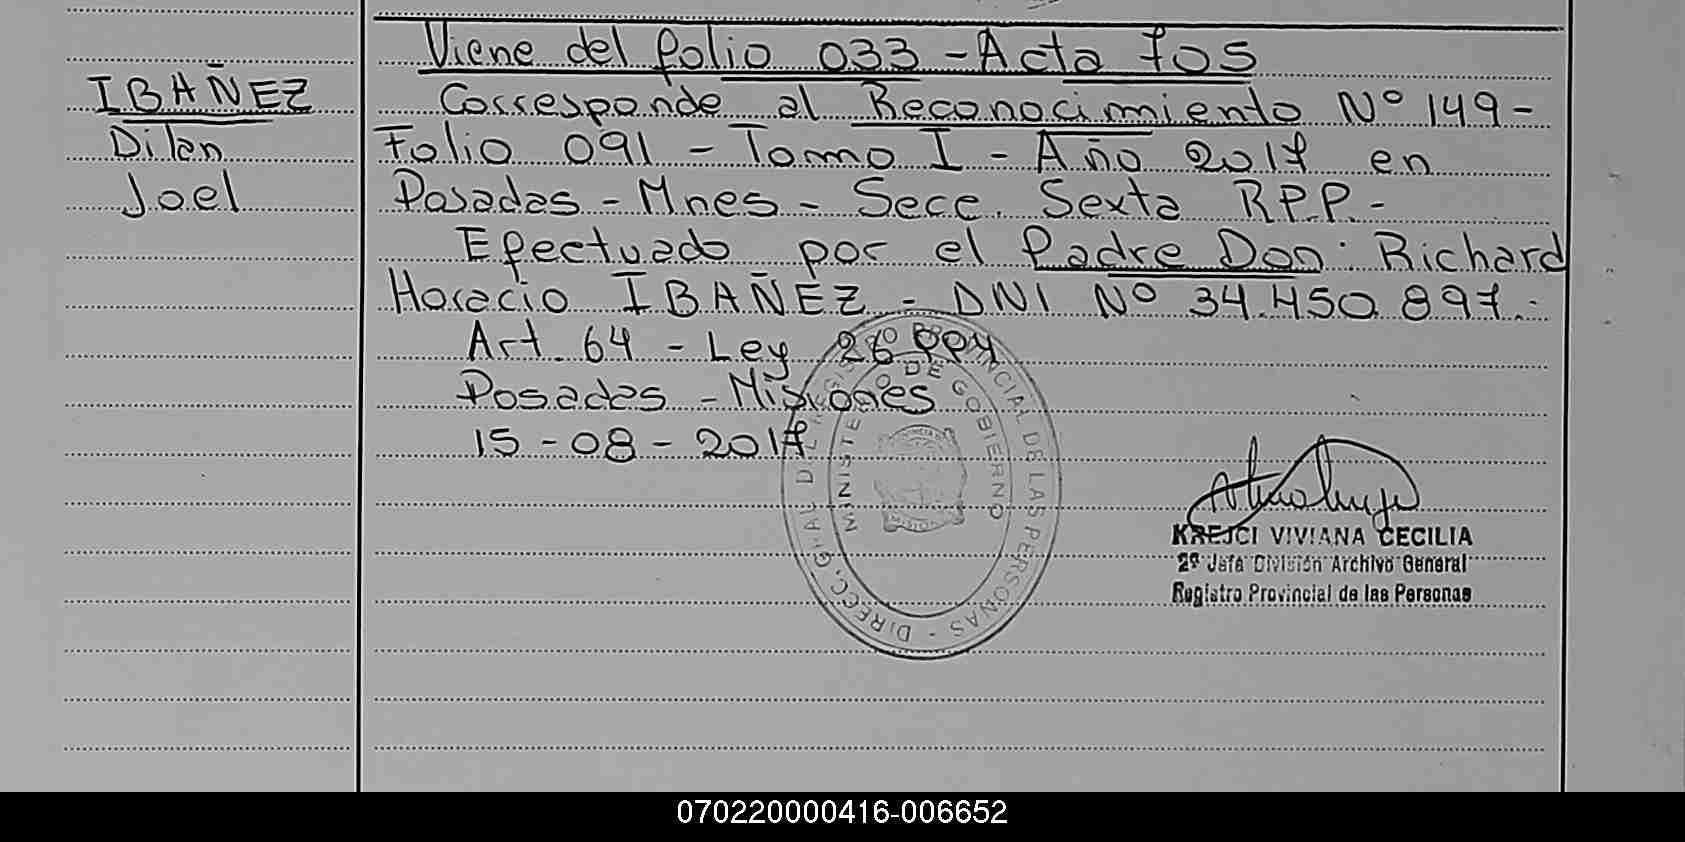 IBAÑEZ
Dilan
Joel
Viene del folio 033 - Acta 705
Corresponde al Reconocimiento Nº 149 -
Folio 091 - Tomo I - Año 2017 en
Posadas - Mnes - Secc. Sexta R.P.P. -
Efectuado por el Padre Don: Richard
Horacio IBAÑEZ - DNI Nº 34.450.897.-
Art. 64 - Ley 26994
Posadas - Misiones
15-08-2017
DIRECC. GRAL DEL REGISTRO PROVINCIAL DE LAS PERSONAS -
MINISTERIO DE GOBIERNO
PROVINCIA DE
MISIONES
KREJCI VIVIANA CECILIA
2º Jefe División Archivo General
Registro Provincial de las Personas
070220000416-006652